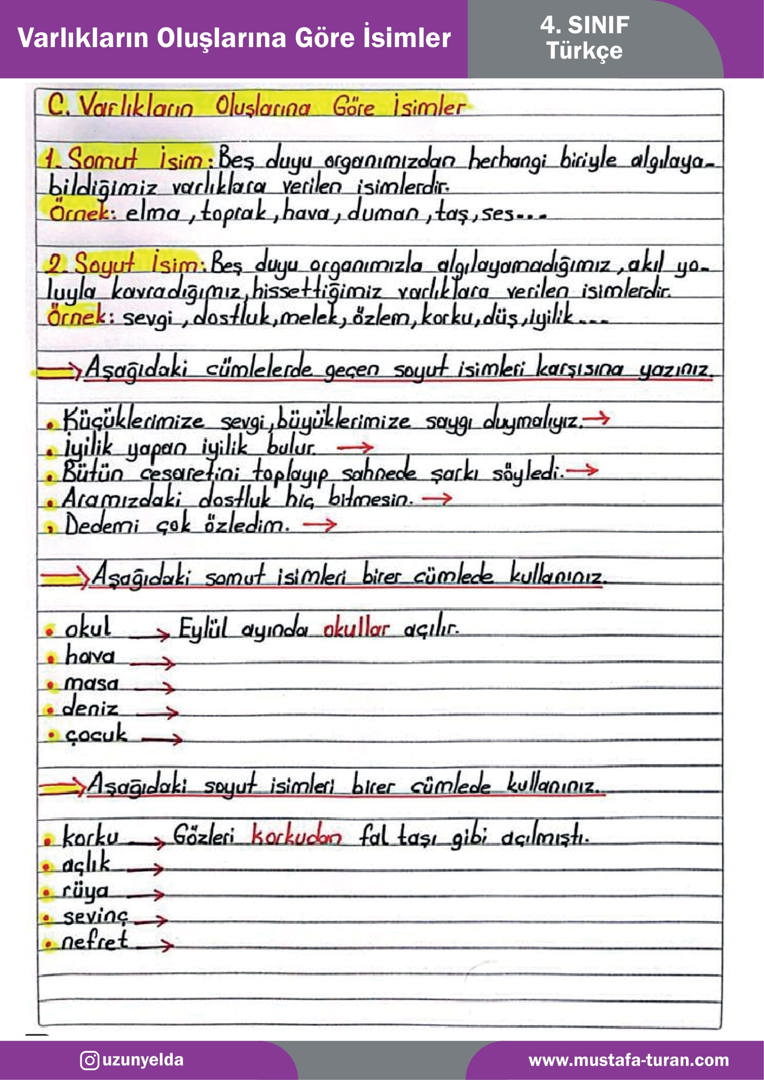 Varlıkların Oluşlarına Göre İsimler
4. SINIF
Türkçe
C. Varlıkların Oluşlarına Göre İsimler
1. Somut İsim: Beş duyu organımızdan herhangi biriyle algılaya-
bildiğimiz varlıklara verilen isimlerdir.
Örnek: elma, toprak, hava, duman, taş, ses....
2. Soyut İsim: Beş duyu organımızla algılayamadığımız, akıl yo-
luyla kavradığımız, hissettiğimiz varlıklara verilen isimlerdir.
Örnek: sevgi, dostluk, melek, özlem, korku, düş, iyilik....
⇒ Aşağıdaki cümlelerde geçen soyut isimleri karşısına yazınız.
• Küçüklerimize sevgi, büyüklerimize saygı duymalıyız. →
• İyilik yapan iyilik bulur. →
• Bütün cesaretini toplayıp sahnede şarkı söyledi. →
• Aramızdaki dostluk hiç bitmesin. →
• Dedemi çok özledim. →
⇒ Aşağıdaki somut isimleri birer cümlede kullanınız.
• okul → Eylül ayında okullar açılır.
• hava →
• masa →
• deniz →
• çocuk →
⇒ Aşağıdaki soyut isimleri birer cümlede kullanınız.
• korku → Gözleri korkudan fal taşı gibi açılmıştı.
• açlık →
• rüya →
• sevinç →
• nefret →
uzunyelda
www.mustafa-turan.com